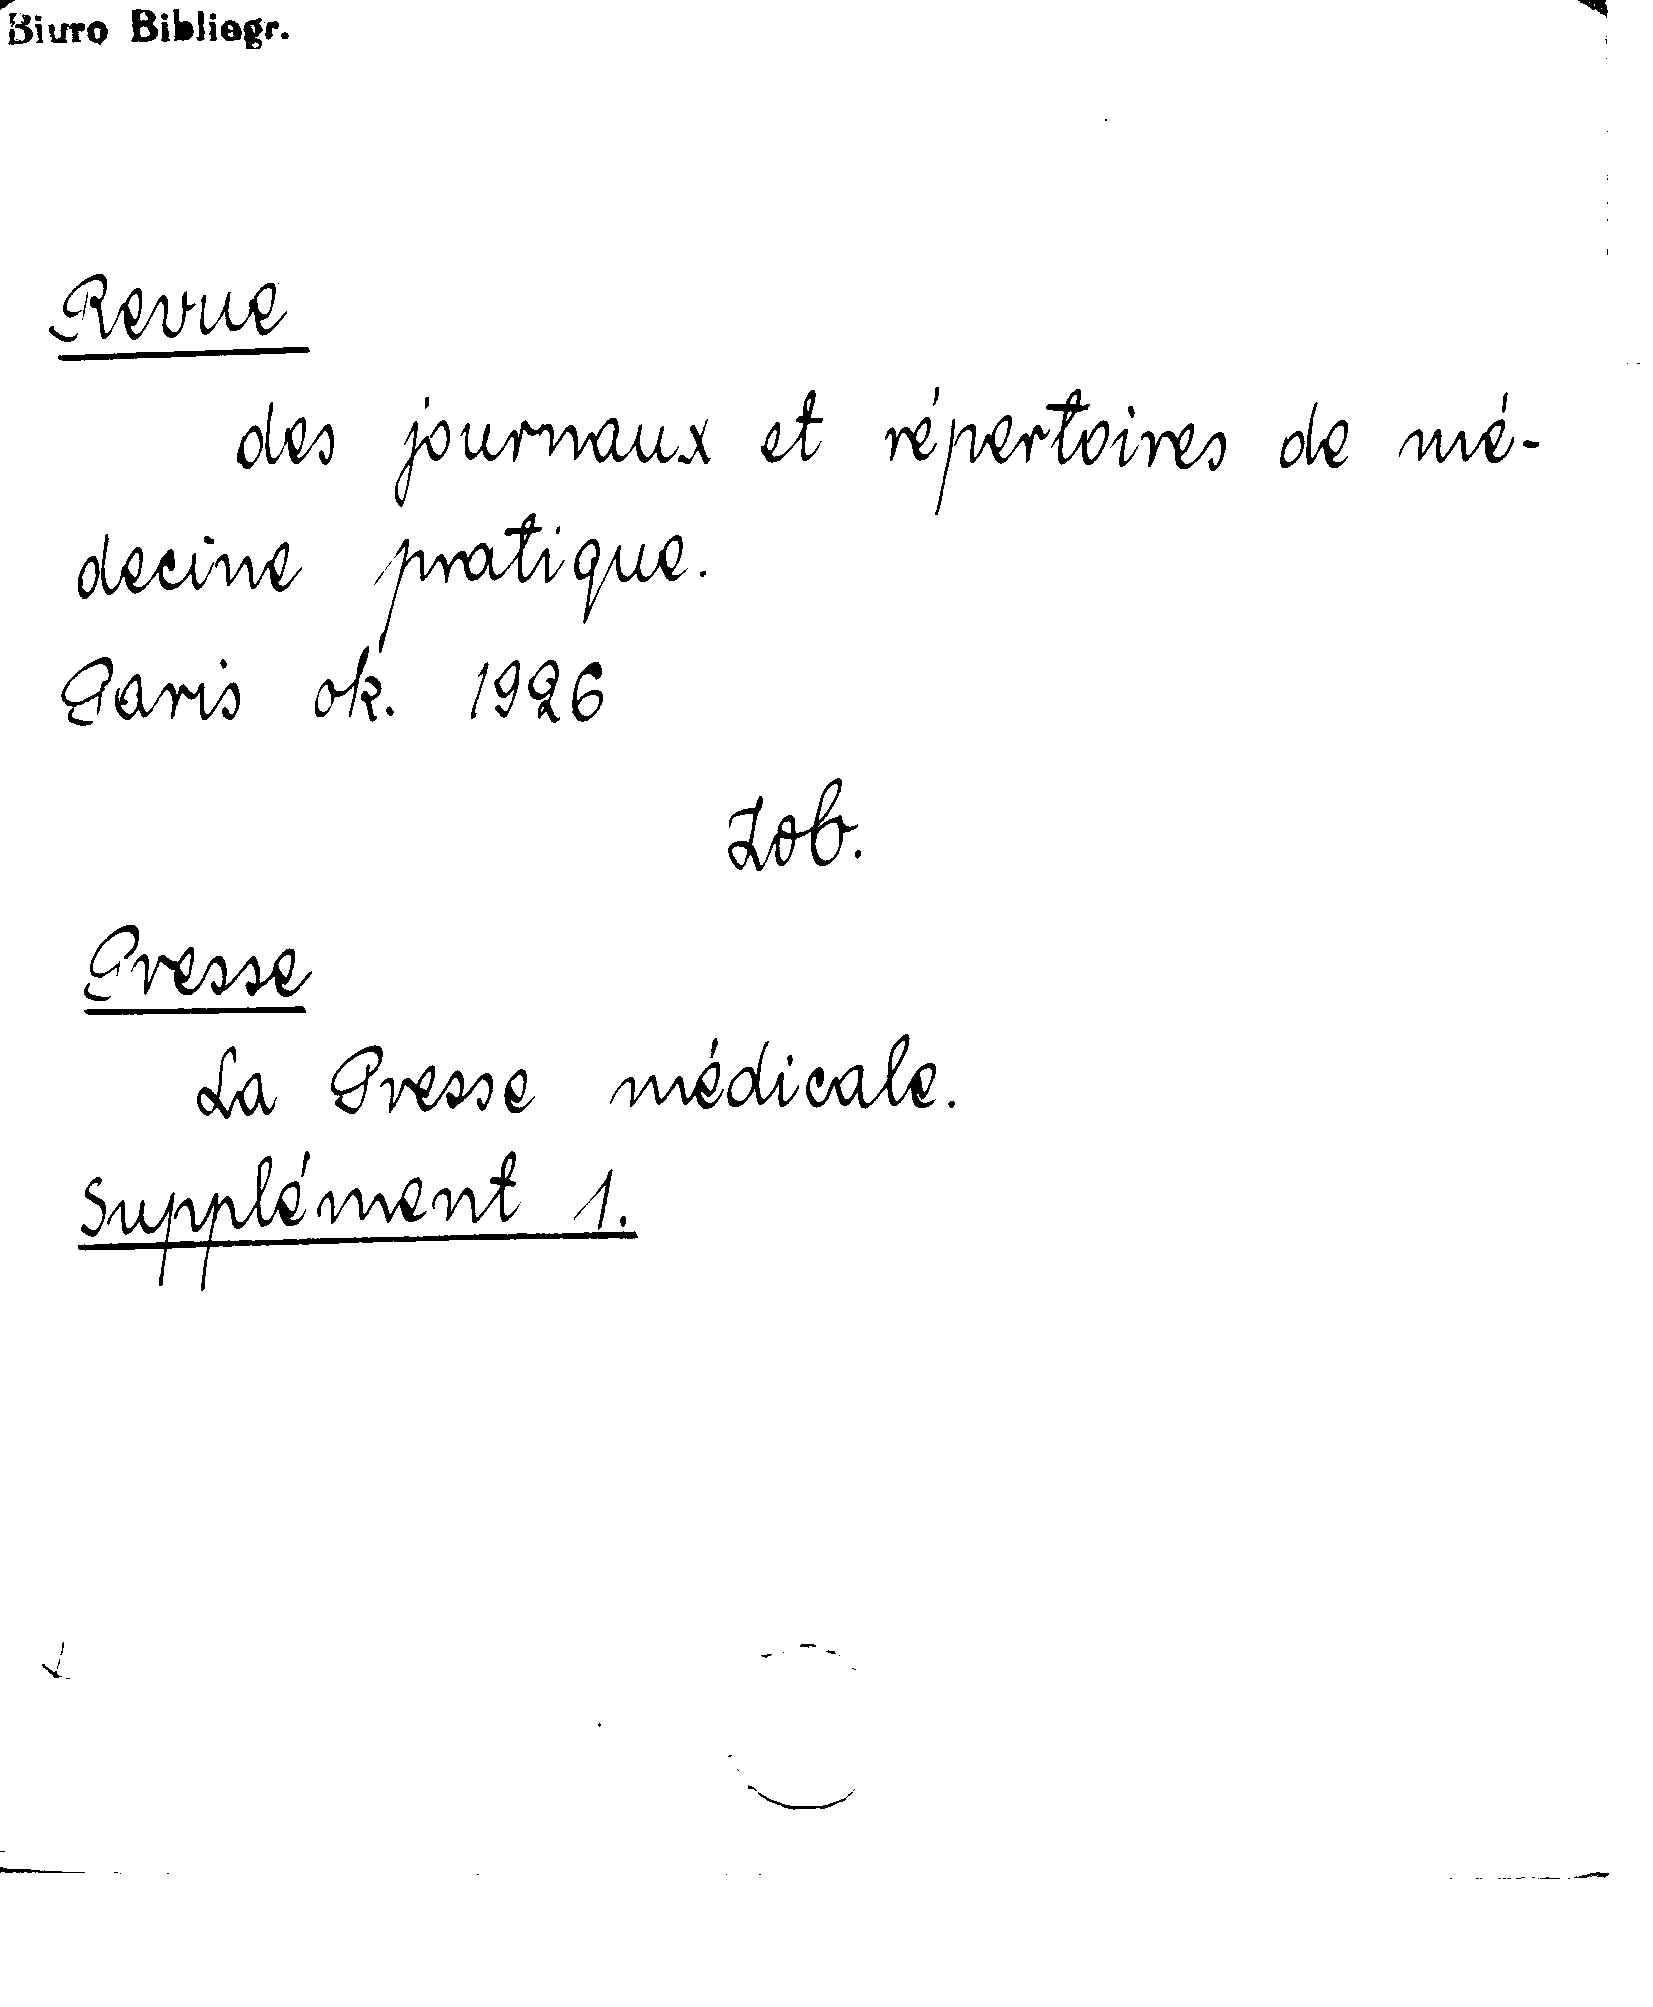 Biuro Bibliogr.
Revue
des journaux et répertoires de mé-
decine pratique.
Paris ok. 1926
Zob.
Presse
La Presse médicale.
Supplément 1.